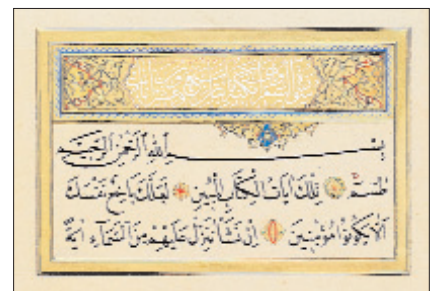 بسم الله الرحمن الرحيم
طسم تلك ايات الكتاب المبين لعلك باخع نفسك
الا يكونوا مؤمنين ان نشأ ننزل عليهم من السماء اية